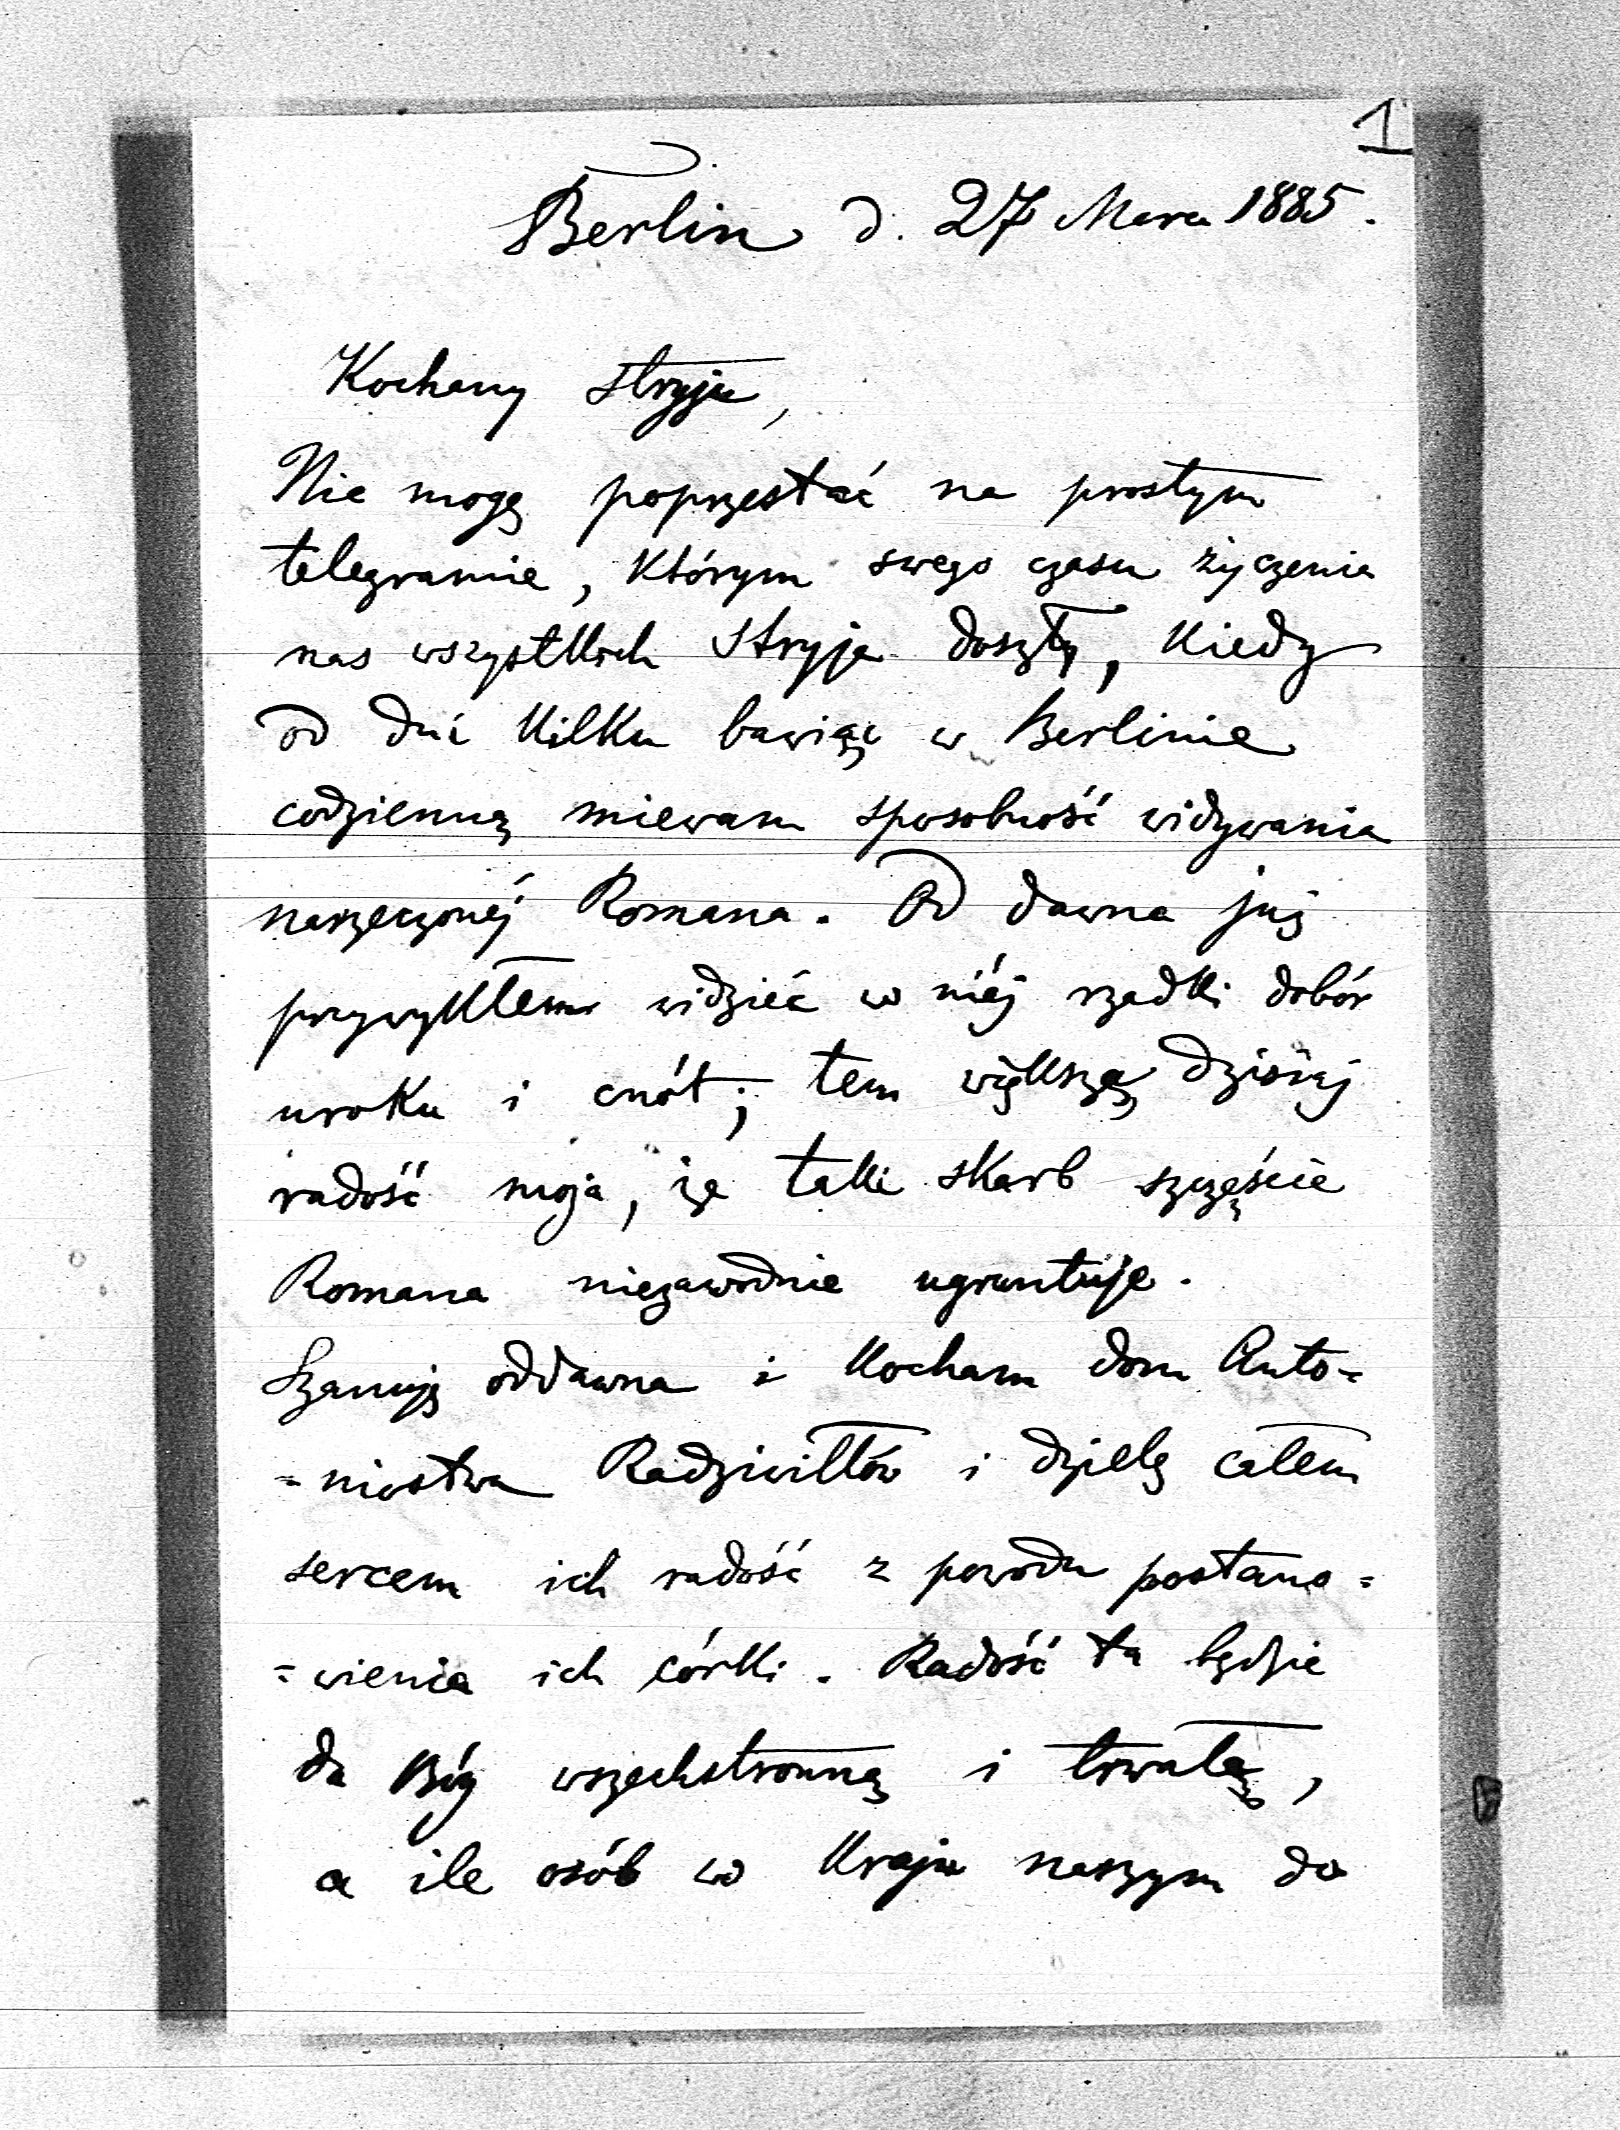 1
Berlin d. 27 Marca 1885.
Kochany Stryju,
Nie mogę poprzestać na prostym
telegramie, którym swego czasu życzenia
nas wszystkich Stryja doszły, kiedy
od dni kilku bawiąc w Berlinie
codzienną miewam sposobność widywania
narzeczonéj Romana. Od dawna już
przywykłem widzieć w niéj rzadki dobór
uroku i cnót; tem większą dzisiaj
radość moja, że taki skarb szczęście
Romana niezawodnie ugruntuje.
Szanuję oddawna i kocham dom Anto=
=niostwa Radziwiłłów i dzielę całem
sercem ich radość z powodu postano=
=wienia ich córki. Radość ta będzie
da Bóg wszechstronną i trwałą,
a ile osób w kraju naszym do